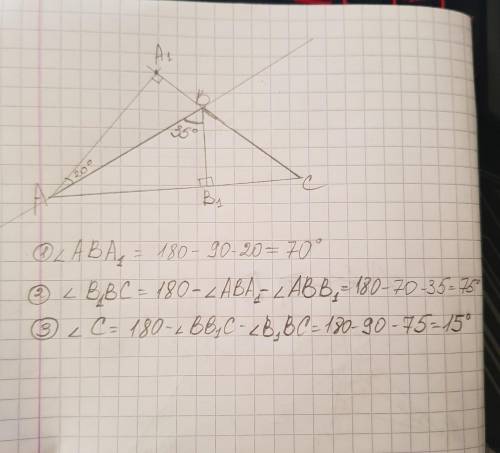 A₁
B
35°
20°
A
B₁
C
① ∠ABA₁ = 180-90-20=70°
② ∠B₁BC=180-∠ABA₁-∠ABB₁=180-70-35=75°
③ ∠C=180-∠BB₁C-∠B₁BC=180-90-75=15°